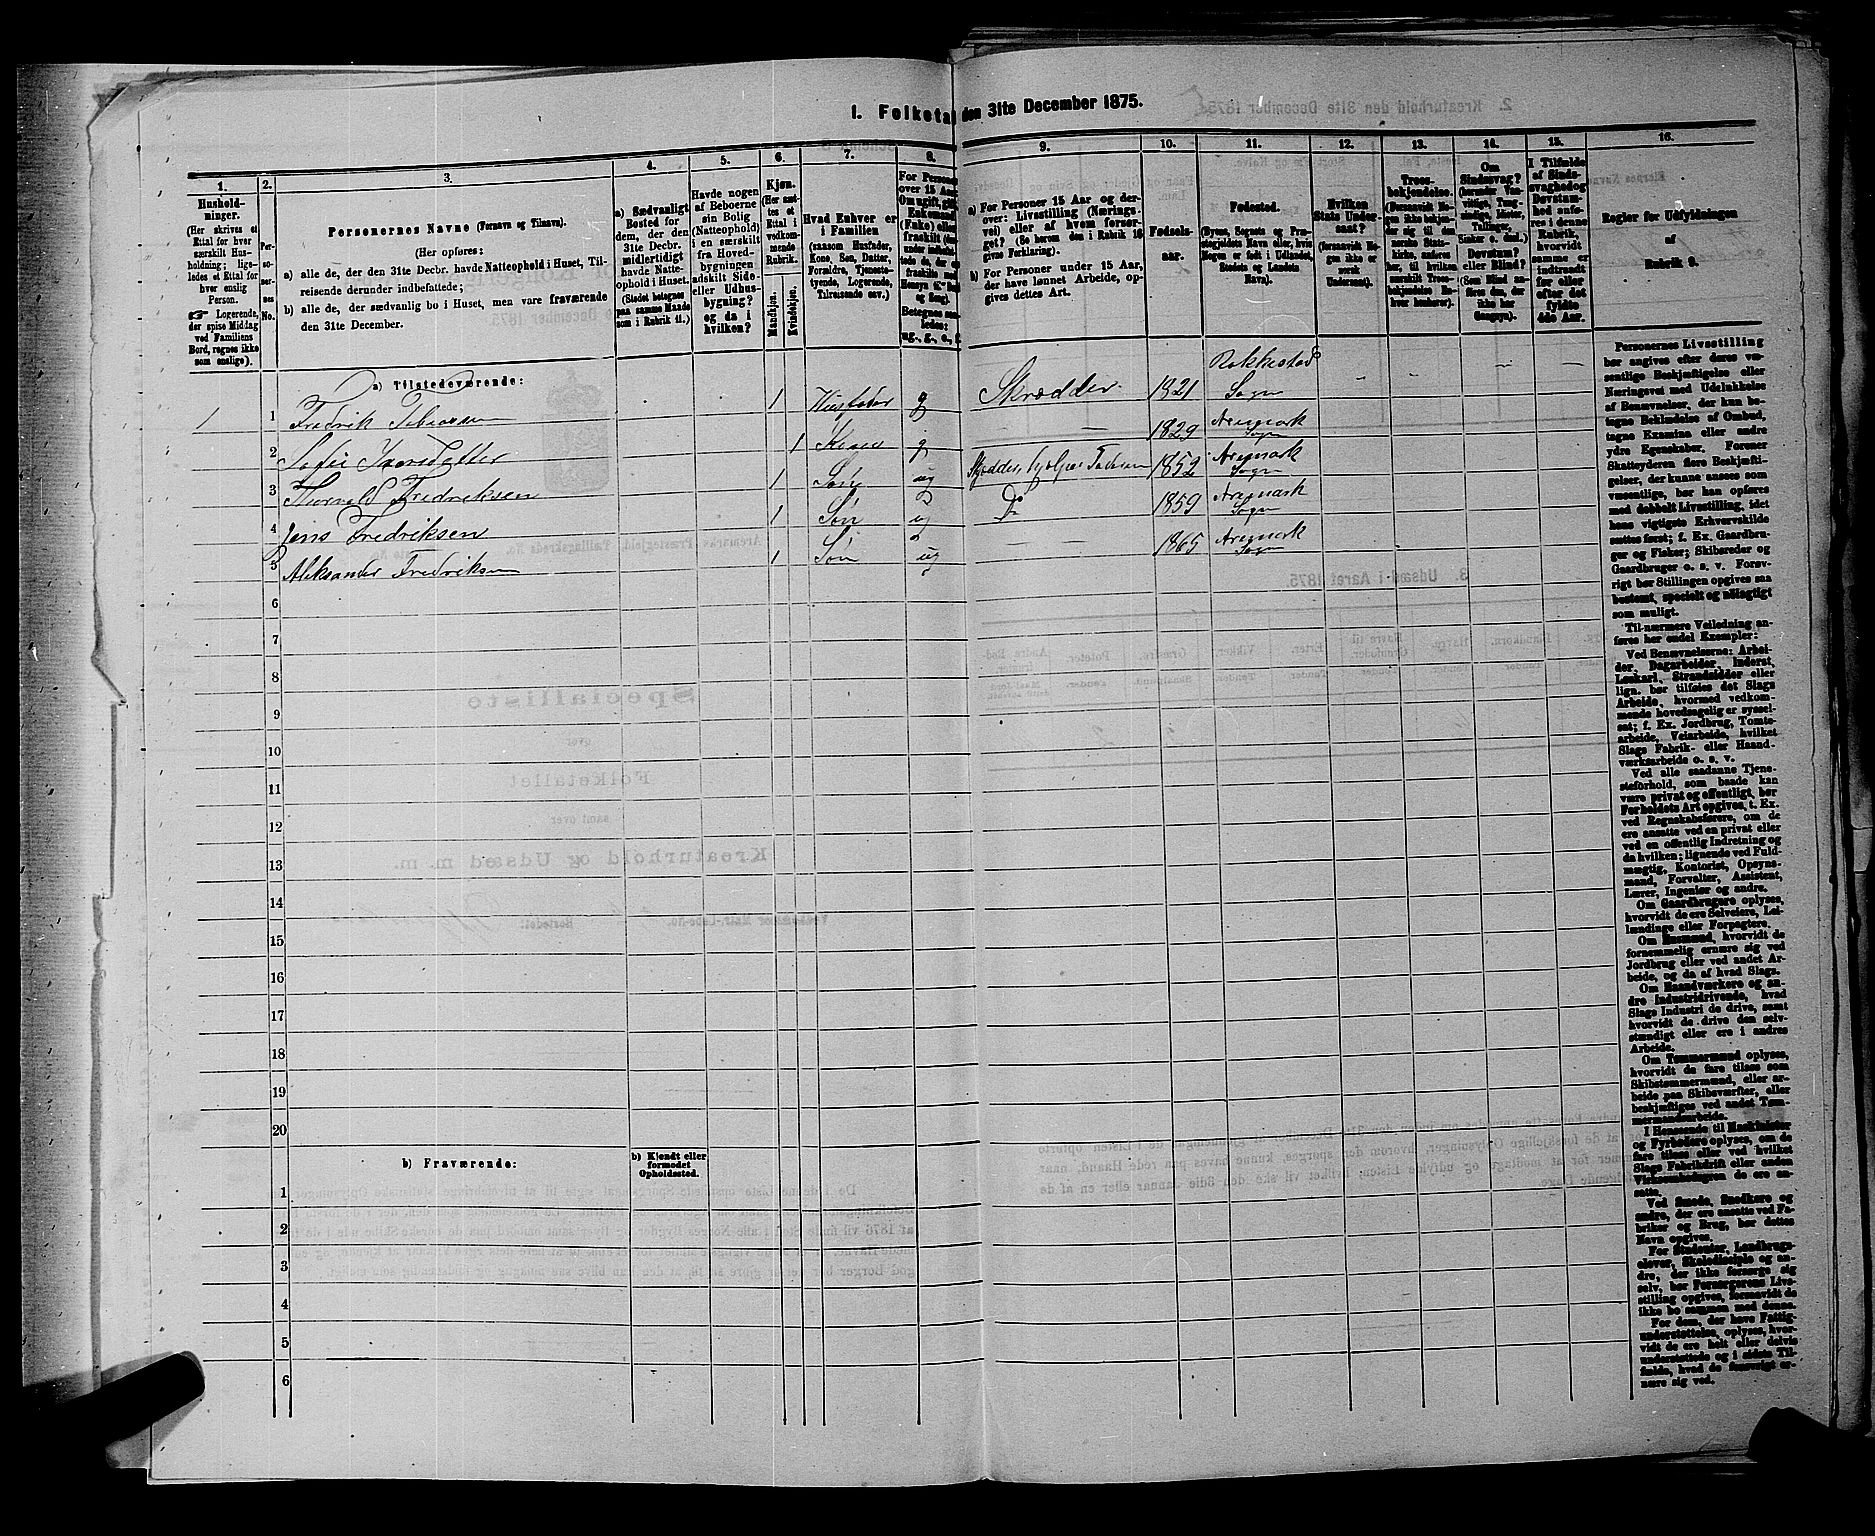 1. Folketal den 31te December 1875.
1.
2.
3.
4.
5.
6.
7.
8.
9.
10.
11.
12.
13.
14.
15.
16.
Husholdninger.
(Her skrives et Ettal for hver særskilt Husholdning; ligeledes et Ettal for hver enslig Person.
☞ Logerende, der spise Middag ved Familiens Bord, regnes ikke som enslige).
Personernes No.
Personernes Navne (Fornavn og Tilnavn).
(Her opføres:
a) alle de, der den 31te Decbr. havde Natteophold i Huset, Tilreisende derunder indbefattede;
b) alle de, der sædvanlig bo i Huset, men vare fraværende den 31te December.
a) Sædvanligt Bosted for dem, der den 31te Decbr. midlertidigt havde Natteophold i Huset.
(Stedet betegnes paa samme Maade som i Rubrik 11.)
Havde nogen af Beboerne sin Bolig (Natteophold) i en særskilt fra Hovedbygningen adskilt Side- eller Udhusbygning? og da i hvilken?
Kjøn.
(Her sættes et Ettal i vedkommende Rubrik.)
Mandkjøn.
Kvindekjøn.
Hvad Enhver er i Familien
(saasom Husfader, Kone, Søn, Datter, Forældre, Tjenestetyende, Logerende, Tilreisende osv.)
a) For Personer 15 Aar og derover: Livsstilling (Næringsvei) eller af hvem forsørget? (Se herom den i Rubrik 16 givne Forklaring).
b) For Personer under 15 Aar, der have lønnet Arbeide, opgives dettes Art.
Fødselsaar.
Fødested.
(Byens, Sognets og Præstegjeldets Navn eller, hvis Nogen er født i Udlandet, Stedets og Landets Navn).
Hvilken Stats Undersaat?
(forsaavidt Nogen ikke er norsk Undersaat).
Troesbekjendelse.
Om Sindssvag?
Døvstum? eller Blind?
I Tilfælde af Sindssvaghed og Døvstumhed anføres i denne Rubrik, hvorvidt samme er indtraadt før eller efter det fyldte 4de Aar.
Regler for Udfyldningen af Rubrik 9.
a) Tilstedeværende:
1 1 Fredrik Tobiassen 1 Husfader g Skrædder 1821 Rakkestad Sogn
2 Sofie Iversdatter 1 Kone g — — 1829 Aremark Sogn
3 Thorvald Fredriksen 1 Søn ug Skrædder, hjelper Faderen 1852 Aremark Sogn
4 Jens Fredriksen 1 Søn ug Do 1859 Aremark Sogn
5 Aleksander Fredriksen 1 Søn ug — — 1865 Aremark Sogn
6
7
8
9
10
11
12
13
14
15
16
17
18
19
20
b) Fraværende:
b) Kjendt eller formodet Opholdssted.
1
2
3
4
5
6
Personernes Livsstilling bør angives efter deres væsentlige Beskjæftigelse eller Næringsvei med Udelukkelse af Benævnelser, der kun betegne Beklædelse af Ombud, tagne Examina eller andre ydre Egenskaber. Forener Skatteyderen flere Beskjæftigelser, der kunne ansees som væsentlige, bør han opføres med dobbelt Livsstilling, idet hans vigtigste Erhvervskilde sættes først; f. Ex. Gaardbruger og Fisker; Skibsreder og Gaardbruger o. s. v. Forøvrigt bør Stillingen opgives saa bestemt, specielt og nøiagtigt som muligt.
Til nærmere Veiledning anføres her endel Exempler:
Ved Benævnelserne: Arbeider, Dagarbeider, Inderst, Løskarl, Strandsidder eller lign. bør tilføies det Slags Arbeide, hvormed vedkommende hovedsagelig er sysselsat; f. Ex. Jordbrug, Tomtearbeide, Veiarbeide, hvilket Slags Fabrik- eller Haandværksarbeide o. s. v.
Ved alle saadanne Tjenesteforhold, som baade kan være privat og offentligt, bør Forholdets Art opgives, t. Ex. ved Regnskabsførere, om de ere ansatte ved en privat eller ved en offentlig Indretning og da hvilken; lignende ved Fuldmægtig, Kontorist, Opsynsmand, Forvalter, Assistent, Lærer, Ingeniør og andre.
Om Gaardbrugere oplyses, hvorvidt de ere Selveiere, Leilændinge eller Forpagtere.
Om Husmænd, hvorvidt de fornemmelig ernære sig ved Jordbrug eller ved andet Arbeide, og da af hvad Slags.
Om Haandværkere og andre Industridrivende, hvad Slags Industri de drive, samt hvorvidt de drive den selvstændigt eller ere i andres Arbeide.
Om Tømmermænd oplyses, hvorvidt de fare tilsøs som Skibstømmermænd, eller arbeide paa Skibsværfter, eller beskjæftiges ved andet Tømmermandsarbeide.
I Henseende til Maskinister og Fyrbødere oplyses, om de fare tilsøs eller ved hvilket Slags Fabrikdrift eller anden Virksomhed de ere ansatte.
Ved Smede, Snedkere og andre, der ere ansatte ved Fabriker og Brug, bør dettes Navn opgives.
For Studenter, Landbrugselever, Skoledisciple og andre, der ikke forsørge sig selv, bør Forsørgerens Livsstilling opgives, forsaavidt de ikke bo sammen med denne.
For dem, der have Fattigunderstøttelse, oplyses, hvorvidt de ere helt eller delvis understøttede og i sidste Tilfælde, hvad de forøvrigt ernære sig ved.